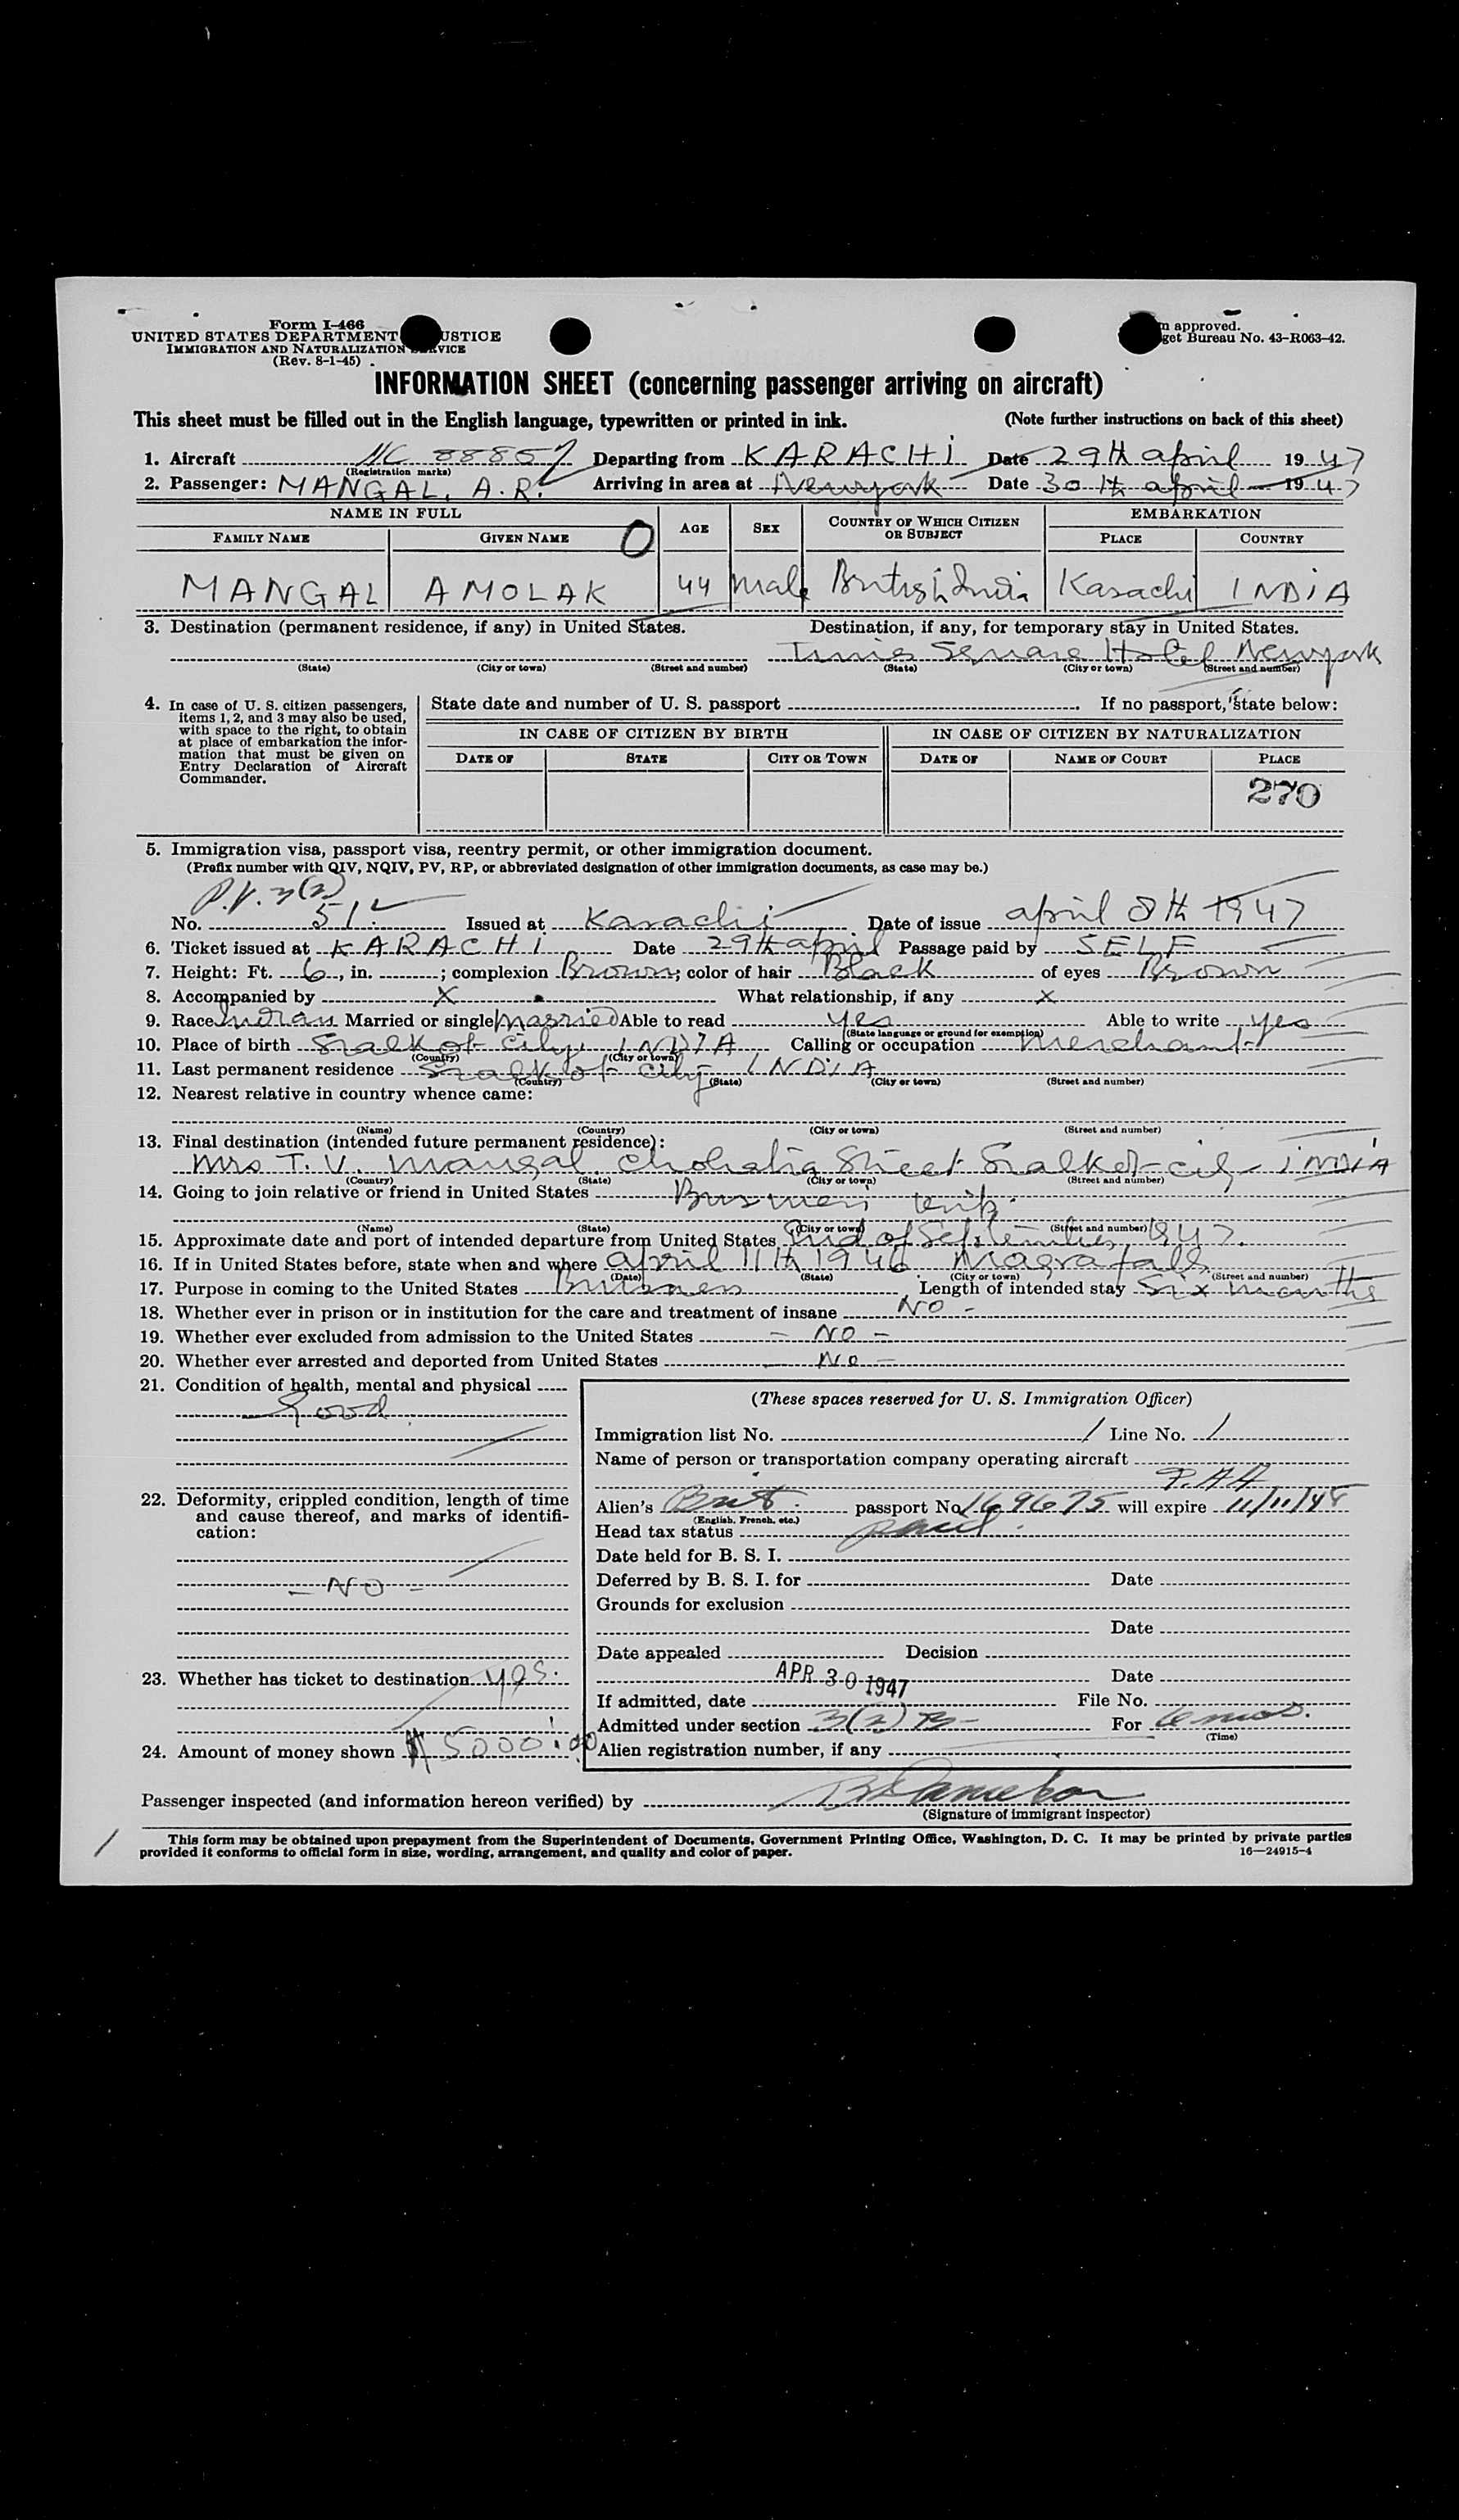 Form I-466
UNITED STATES DEPARTMENT USTICE
IMMIGRATION AND NATURALIZATION RVICE
(Rev. 8-1-45)
n approved.
get Bureau No. 43-R063-42.
INFORMATION SHEET (concerning passenger arriving on aircraft)
This sheet must be filled out in the English language, typewritten or printed in ink. (Note further instructions on back of this sheet)
1. Aircraft NC 88857 Departing from KARACHI Date 29th april 1947
(Registration marks)
2. Passenger: MANGAL, A.R. Arriving in area at Newyork Date 30th april 1947
NAME IN FULL AGE SEX COUNTRY OF WHICH CITIZEN OR SUBJECT EMBARKATION
FAMILY NAME GIVEN NAME O PLACE COUNTRY
MANGAL AMOLAK 44 Male British India Karachi INDIA
3. Destination (permanent residence, if any) in United States. Destination, if any, for temporary stay in United States.
Times Square Hotel Newyork
(State) (City or town) (Street and number) (State) (City or town) (Street and number)
4. In case of U. S. citizen passengers, items 1, 2, and 3 may also be used, with space to the right, to obtain at place of embarkation the information that must be given on Entry Declaration of Aircraft Commander.
State date and number of U. S. passport If no passport, state below:
IN CASE OF CITIZEN BY BIRTH IN CASE OF CITIZEN BY NATURALIZATION
DATE OF STATE CITY OR TOWN DATE OF NAME OF COURT PLACE
270
5. Immigration visa, passport visa, reentry permit, or other immigration document.
(Prefix number with QIV, NQIV, PV, RP, or abbreviated designation of other immigration documents, as case may be.)
P.V. 3(2)
No. 51. Issued at Karachi Date of issue april 8th 1947
6. Ticket issued at KARACHI Date 29th april Passage paid by SELF
7. Height: Ft. 6, in. ; complexion Brown; color of hair Black of eyes Brown
8. Accompanied by X What relationship, if any X
9. Race Indian Married or single Married Able to read yes Able to write yes
(State language or ground for exemption)
10. Place of birth Sialkot city, INDIA Calling or occupation Merchant
(Country) (City or town)
11. Last permanent residence Sialkot city INDIA
(Country) (State) (City or town) (Street and number)
12. Nearest relative in country whence came:
(Name) (Country) (City or town) (Street and number)
13. Final destination (intended future permanent residence):
Mrs T. V. Mangal, Street Sialkot city INDIA
(Country) (State) (City or town) (Street and number)
14. Going to join relative or friend in United States Business trip.
(Name) (State) (City or town) (Street and number)
15. Approximate date and port of intended departure from United States End of September 1947.
16. If in United States before, state when and where april 11th 1946 Niagrafalls
(Date) (State) (City or town) (Street and number)
17. Purpose in coming to the United States Business Length of intended stay Six months
18. Whether ever in prison or in institution for the care and treatment of insane No -
19. Whether ever excluded from admission to the United States - NO -
20. Whether ever arrested and deported from United States - No -
21. Condition of health, mental and physical
Good
22. Deformity, crippled condition, length of time and cause thereof, and marks of identification:
- NO -
23. Whether has ticket to destination yes.
24. Amount of money shown $5000.00
(These spaces reserved for U. S. Immigration Officer)
Immigration list No. 1 Line No. 1
Name of person or transportation company operating aircraft
P.AA
Alien's Brit. passport No 169675 will expire 11/11/48
(English, French, etc.)
Head tax status paid.
Date held for B. S. I.
Deferred by B. S. I. for Date
Grounds for exclusion
Date
Date appealed Decision
APR 30 1947 Date
If admitted, date File No.
Admitted under section 3(2) B- For 6 mos.
(Time)
Alien registration number, if any
Passenger inspected (and information hereon verified) by
(Signature of immigrant inspector)
This form may be obtained upon prepayment from the Superintendent of Documents, Government Printing Office, Washington, D. C. It may be printed by private parties
provided it conforms to official form in size, wording, arrangement, and quality and color of paper. 16—24915-4